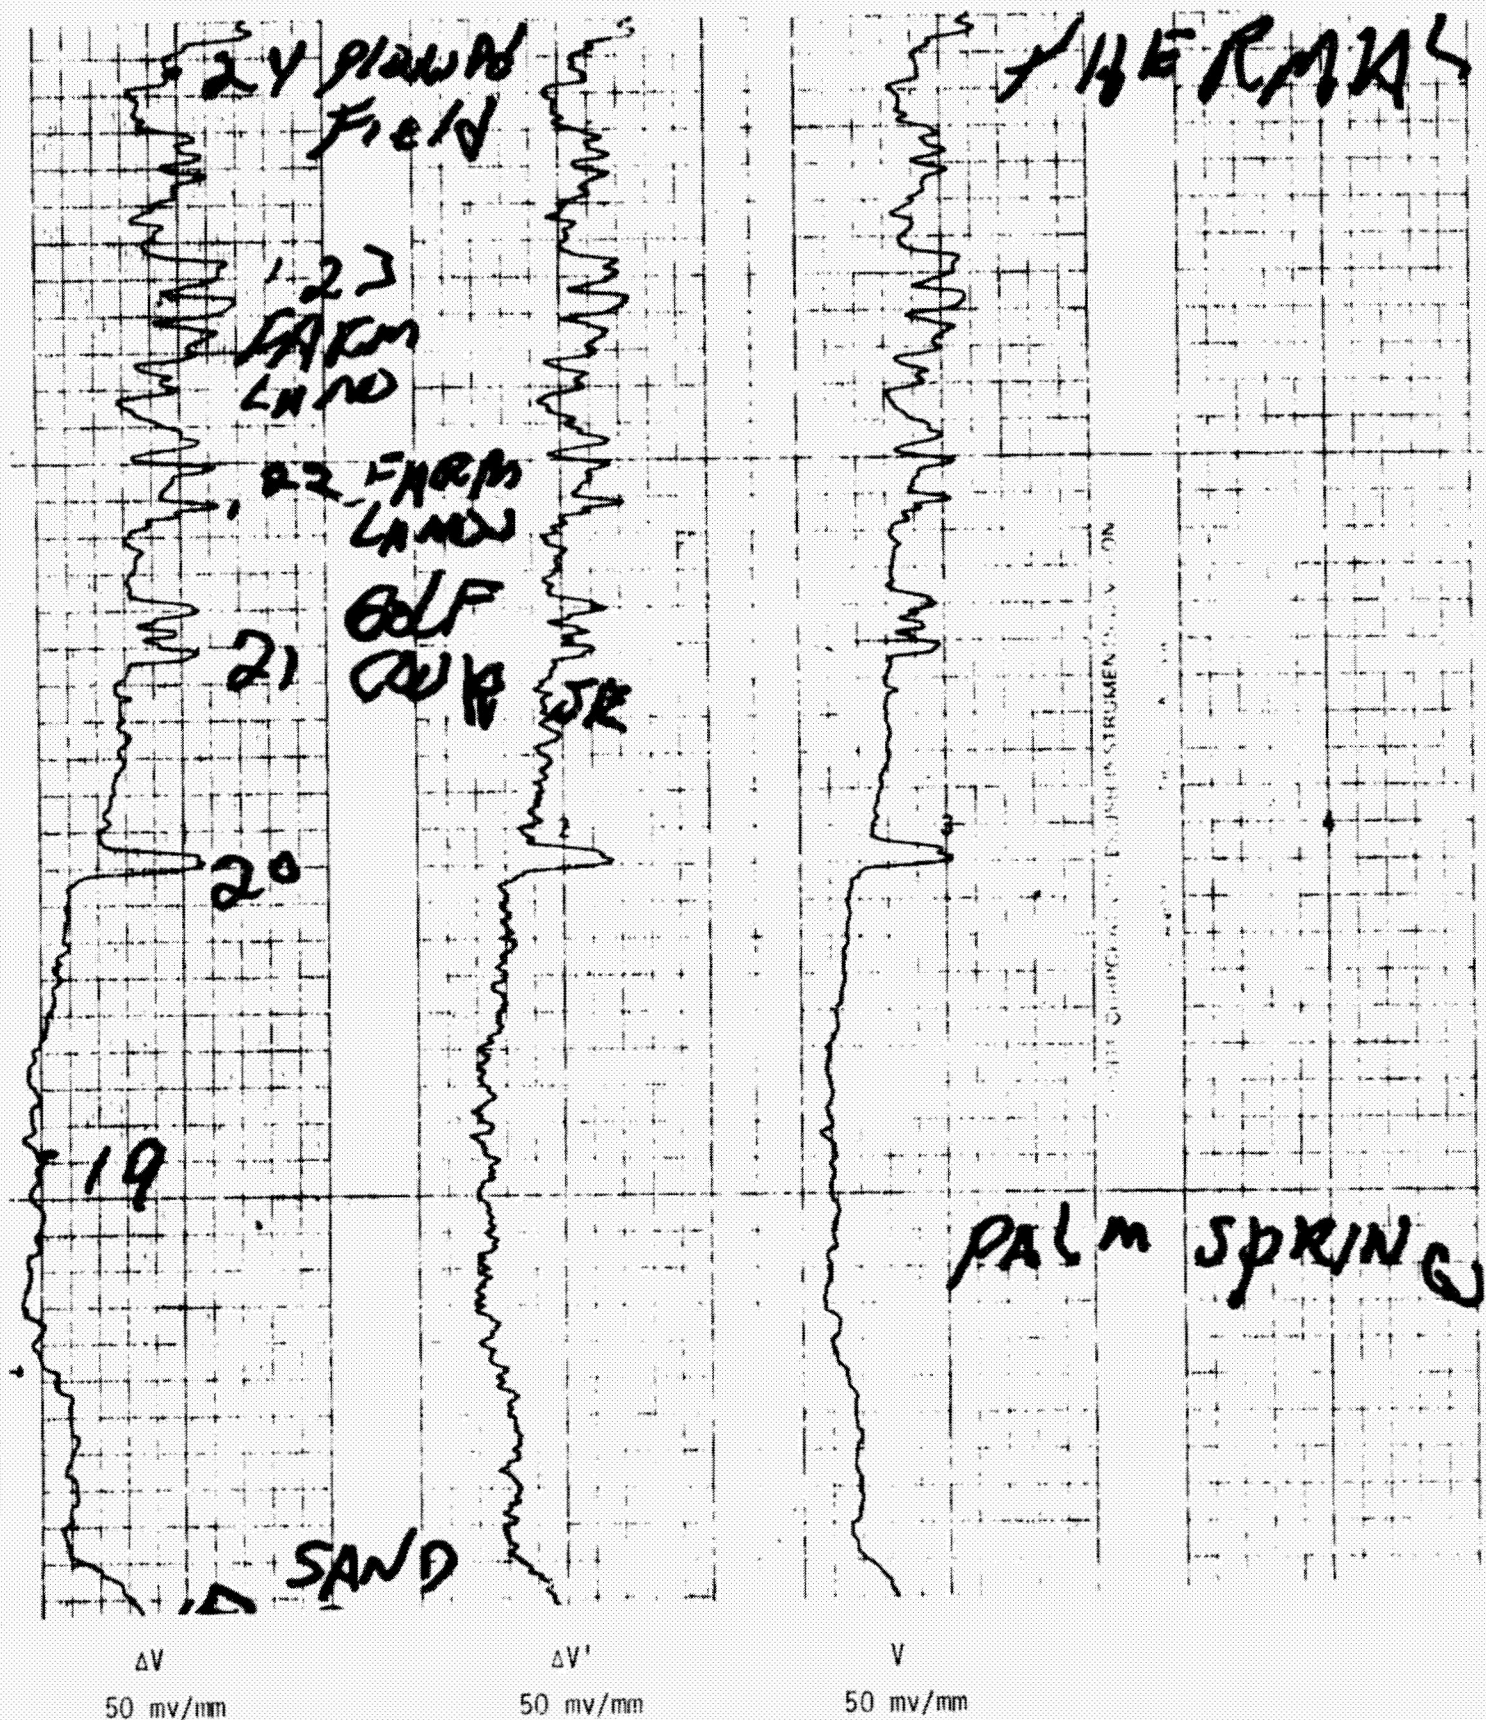 24 Plowed
Field
THERMAL
23
FARM
LAND
22 FARM
LAND
GOLF
21
COURSE
2
3
4
20
19
PALM SPRING
SAND
ΔV
50 mv/mm
ΔV'
50 mv/mm
V
50 mv/mm